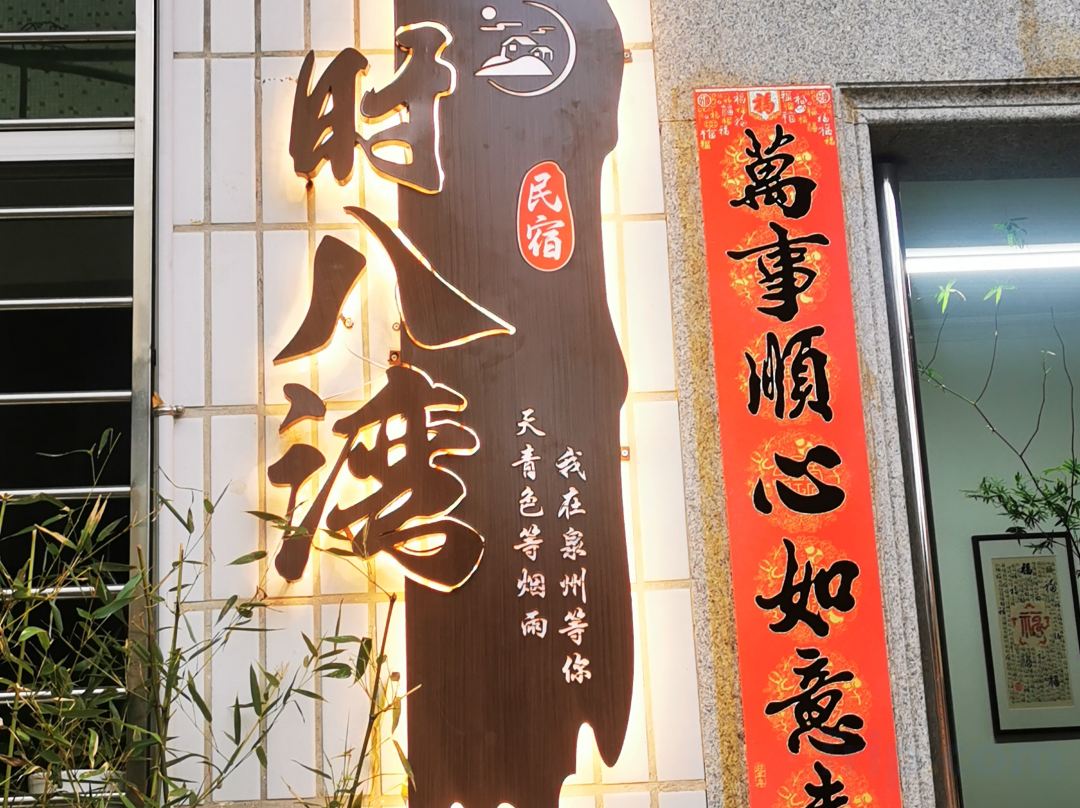 时八湾
民宿
天青色等烟雨
我在泉州等你
福
萬事順心如意
福